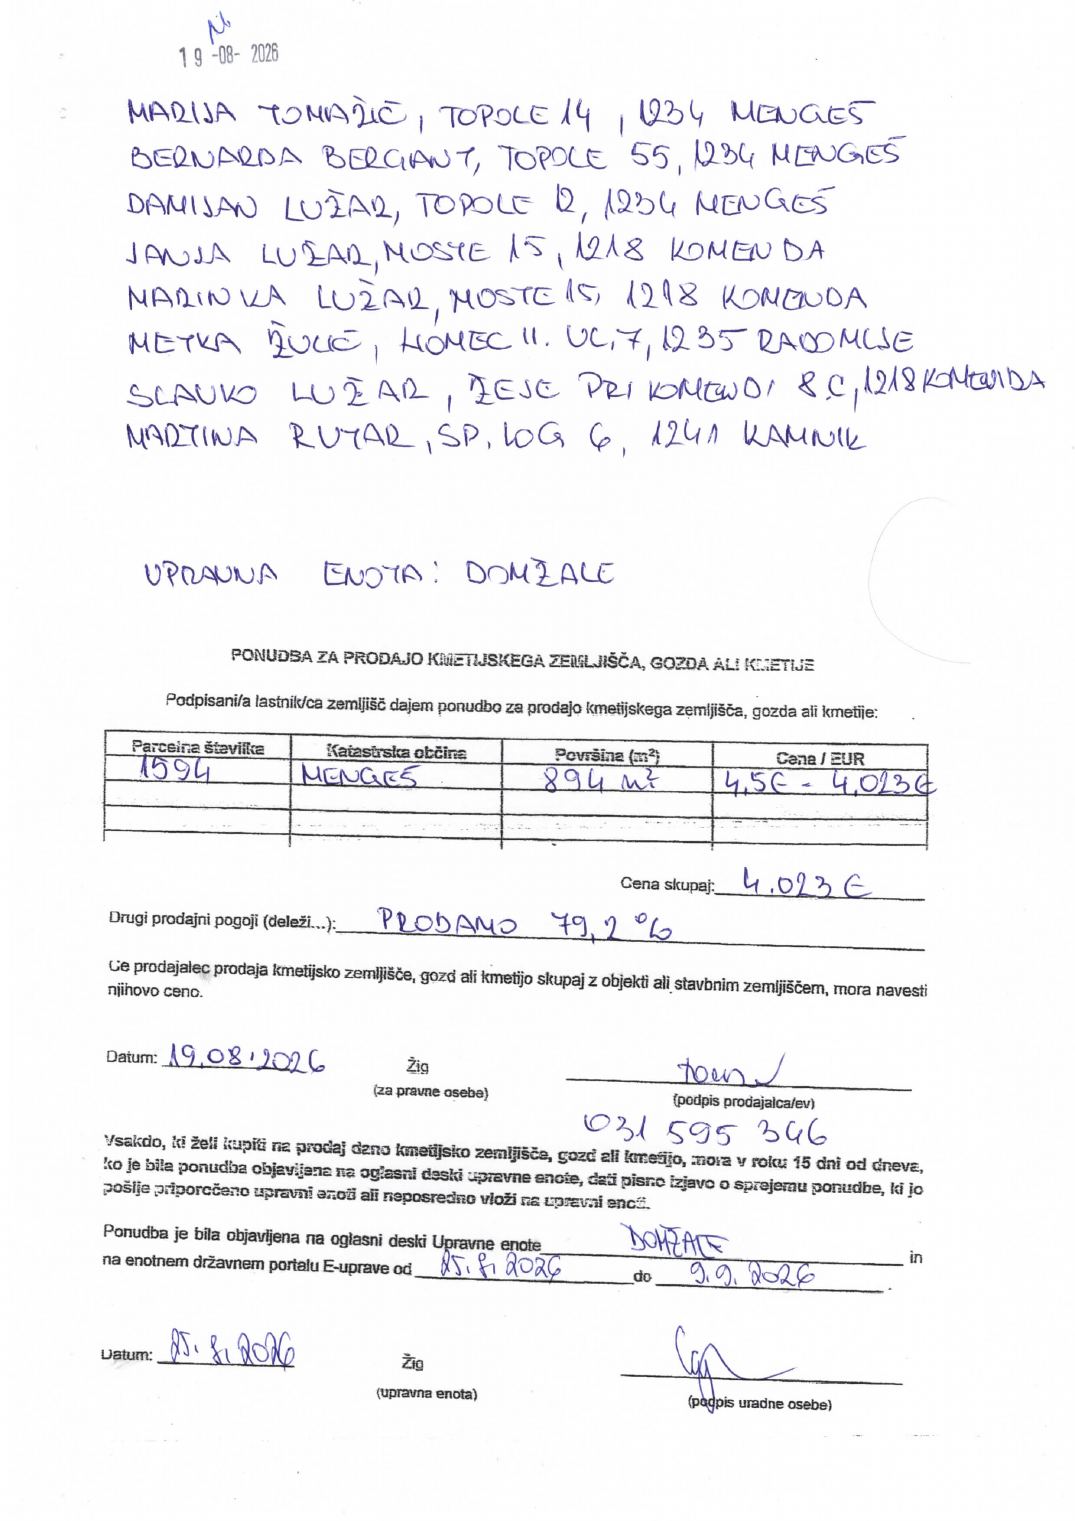 19 -08- 2026
MARIJA TOMAŽIČ, TOPOLE 14, 1234 MENGEŠ
BERNARDA BERGANT, TOPOLE 55, 1234 MENGEŠ
DAMIJAN LUŽAR, TOPOLE 12, 1234 MENGEŠ
JANJA LUŽAR, MOSTE 15, 1218 KOMENDA
MARINKA LUŽAR, MOSTE 15, 1218 KOMENDA
METKA ŽULIČ, HOMEC II. UL. 7, 1235 RADOMLJE
SLAVKO LUŽAR, ŽEJE PRI KOMENDI 8C, 1218 KOMENDA
MARTINA RUTAR, SP. LOG 6, 1241 KAMNIK
UPRAVNA ENOTA: DOMŽALE
PONUDBA ZA PRODAJO KMETIJSKEGA ZEMLJIŠČA, GOZDA ALI KMETIJE
Podpisani/a lastnik/ca zemljišč dajem ponudbo za prodajo kmetijskega zemljišča, gozda ali kmetije:
Parcelna številka Katastrska občina Površina (m²) Cena / EUR
1594 MENGEŠ 894 m² 4,5€ - 4.023€
Cena skupaj: 4.023 €
Drugi prodajni pogoji (deleži...): PRODAMO 79,2 %
Če prodajalec prodaja kmetijsko zemljišče, gozd ali kmetijo skupaj z objekti ali stavbnim zemljiščem, mora navesti
njihovo ceno.
Datum: 19.08.2026 Žig
(za pravne osebe) (podpis prodajalca/ev)
031 595 346
Vsakdo, ki želi kupiti na prodaj dano kmetijsko zemljišče, gozd ali kmetijo, mora v roku 15 dni od dneva,
ko je bila ponudba objavljena na oglasni deski upravne enote, dati pisno izjavo o sprejemu ponudbe, ki jo
pošlje priporočeno upravni enoti ali neposredno vloži na upravni enoti.
Ponudba je bila objavljena na oglasni deski Upravne enote DOMŽALE in
na enotnem državnem portalu E-uprave od 25.8.2026 do 9.9.2026.
Datum: 25.8.2026 Žig
(upravna enota) (podpis uradne osebe)